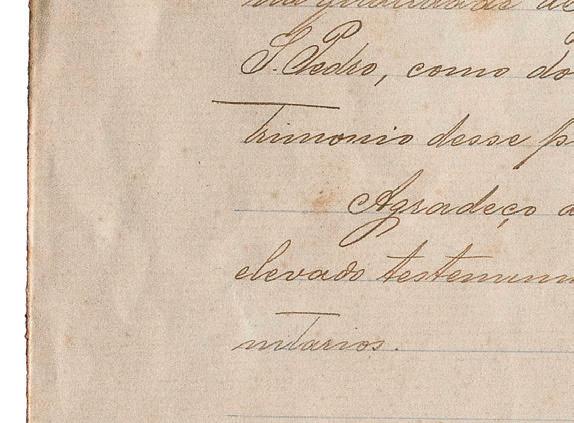 S. Pedro, como do
trimonio desse p
Agradeço a
elevado testemun
nitarios.